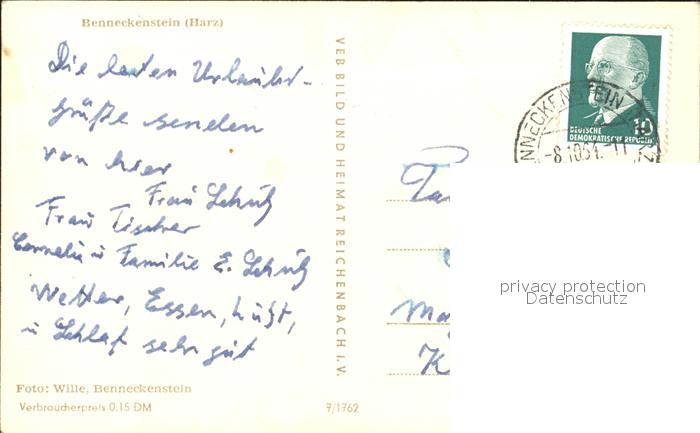 Benneckenstein (Harz)
Die besten Urlaubs-
grüße senden
von hier
Frau Schütz
Frau Tischer
Cornelia u Familie E. Schütz
Wetter, Essen, Luft,
u Schlaf sehr gut
Foto: Wille, Benneckenstein
Verbraucherpreis 0.15 DM
7/1762
VEB BILD UND HEIMAT REICHENBACH I. V.
10
DEUTSCHE
DEMOKRATISCHE REPUBLIK
BENNECKENSTEIN
privacy protection
Datenschutz